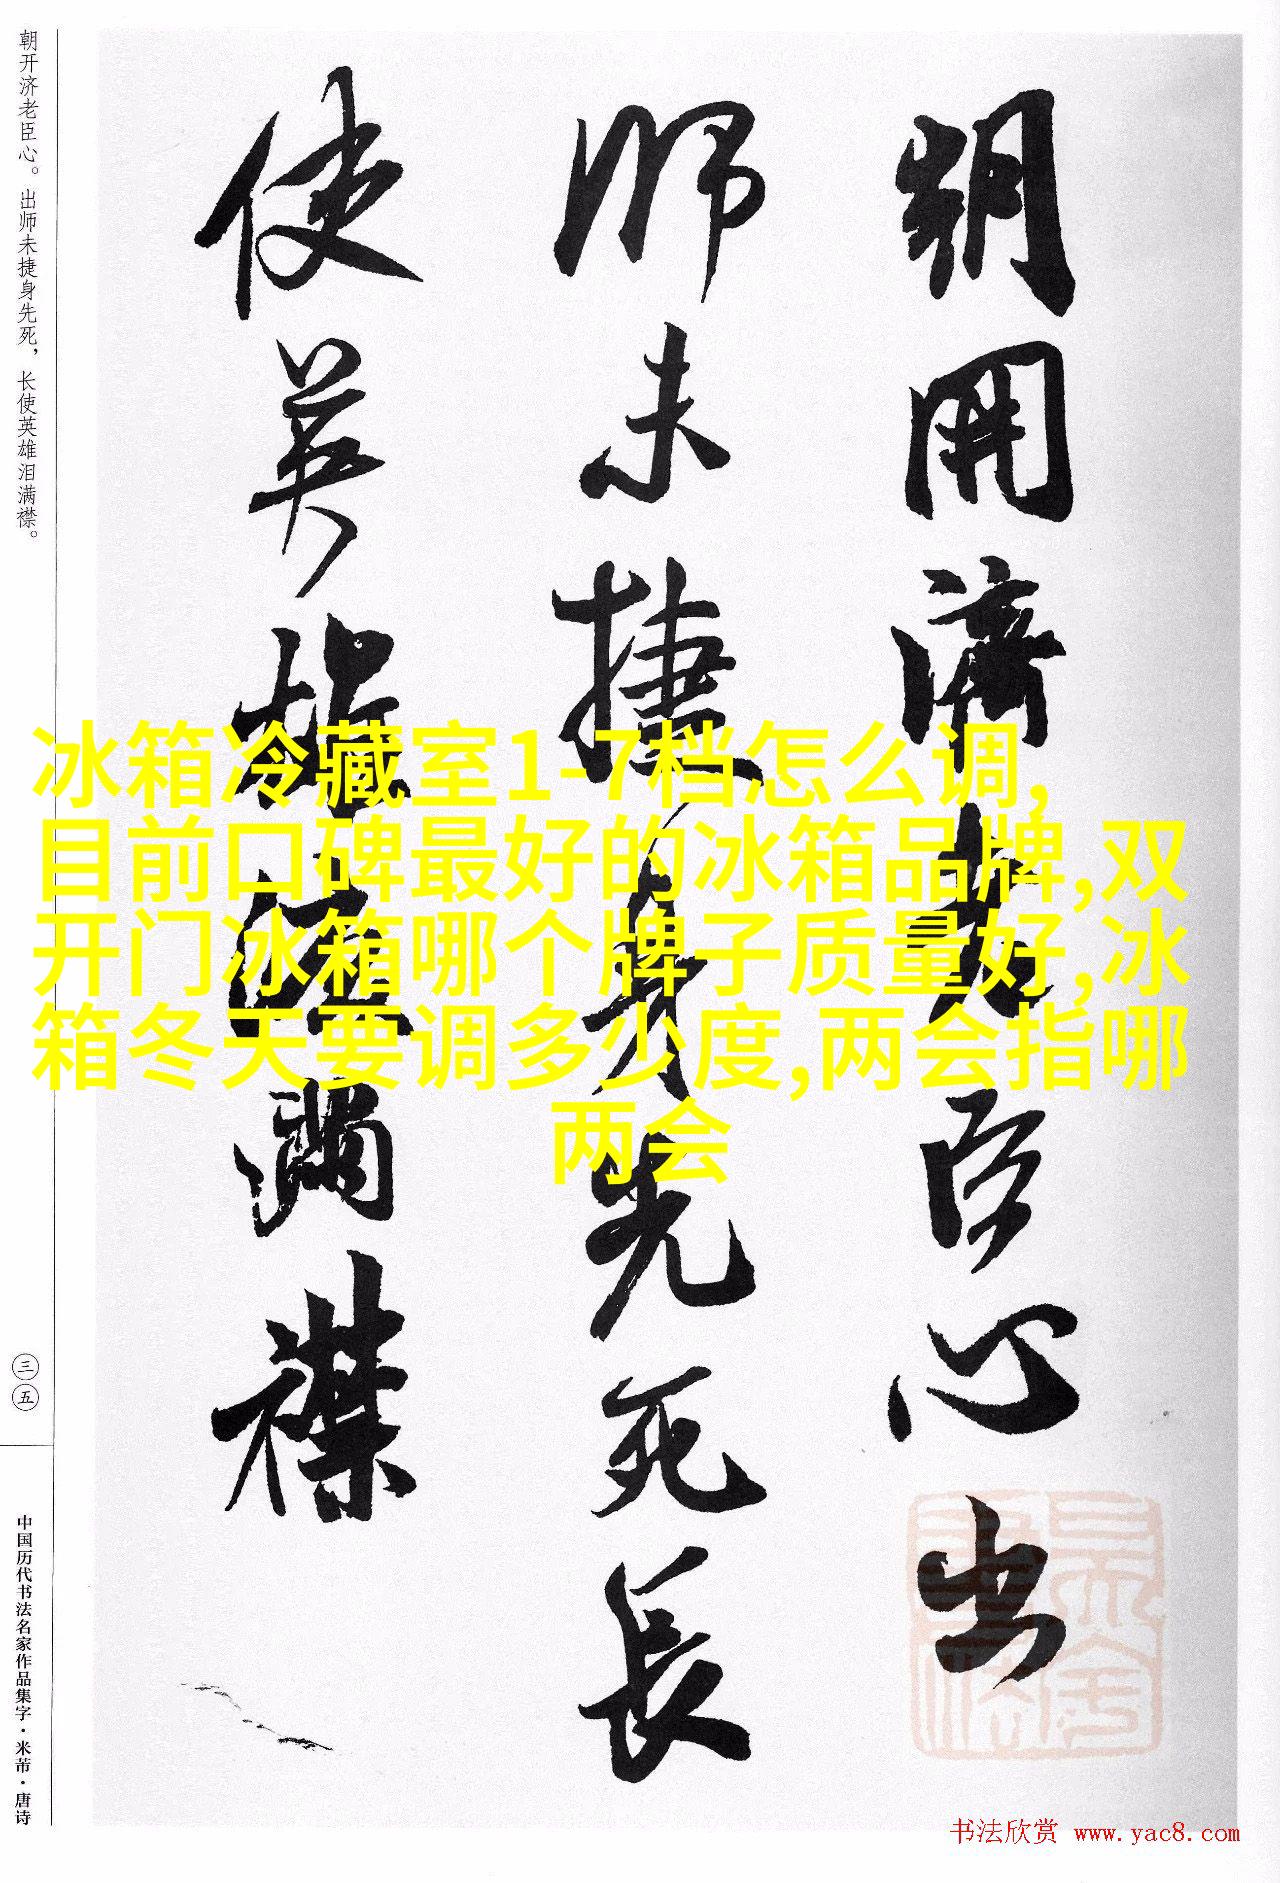 朝开济老臣心。出师未捷身先死，长使英雄泪满襟。
三五
中国历代书法名家作品集字·米芾·唐诗
朝開濟老臣心出
師未捷身先死長
使英雄淚满襟
冰箱冷藏室1-7档怎么调,
目前口碑最好的冰箱品牌,双
开门冰箱哪个牌子质量好,冰
箱冬天要调多少度,两会指哪
两会
书法欣赏 www.yac8.com